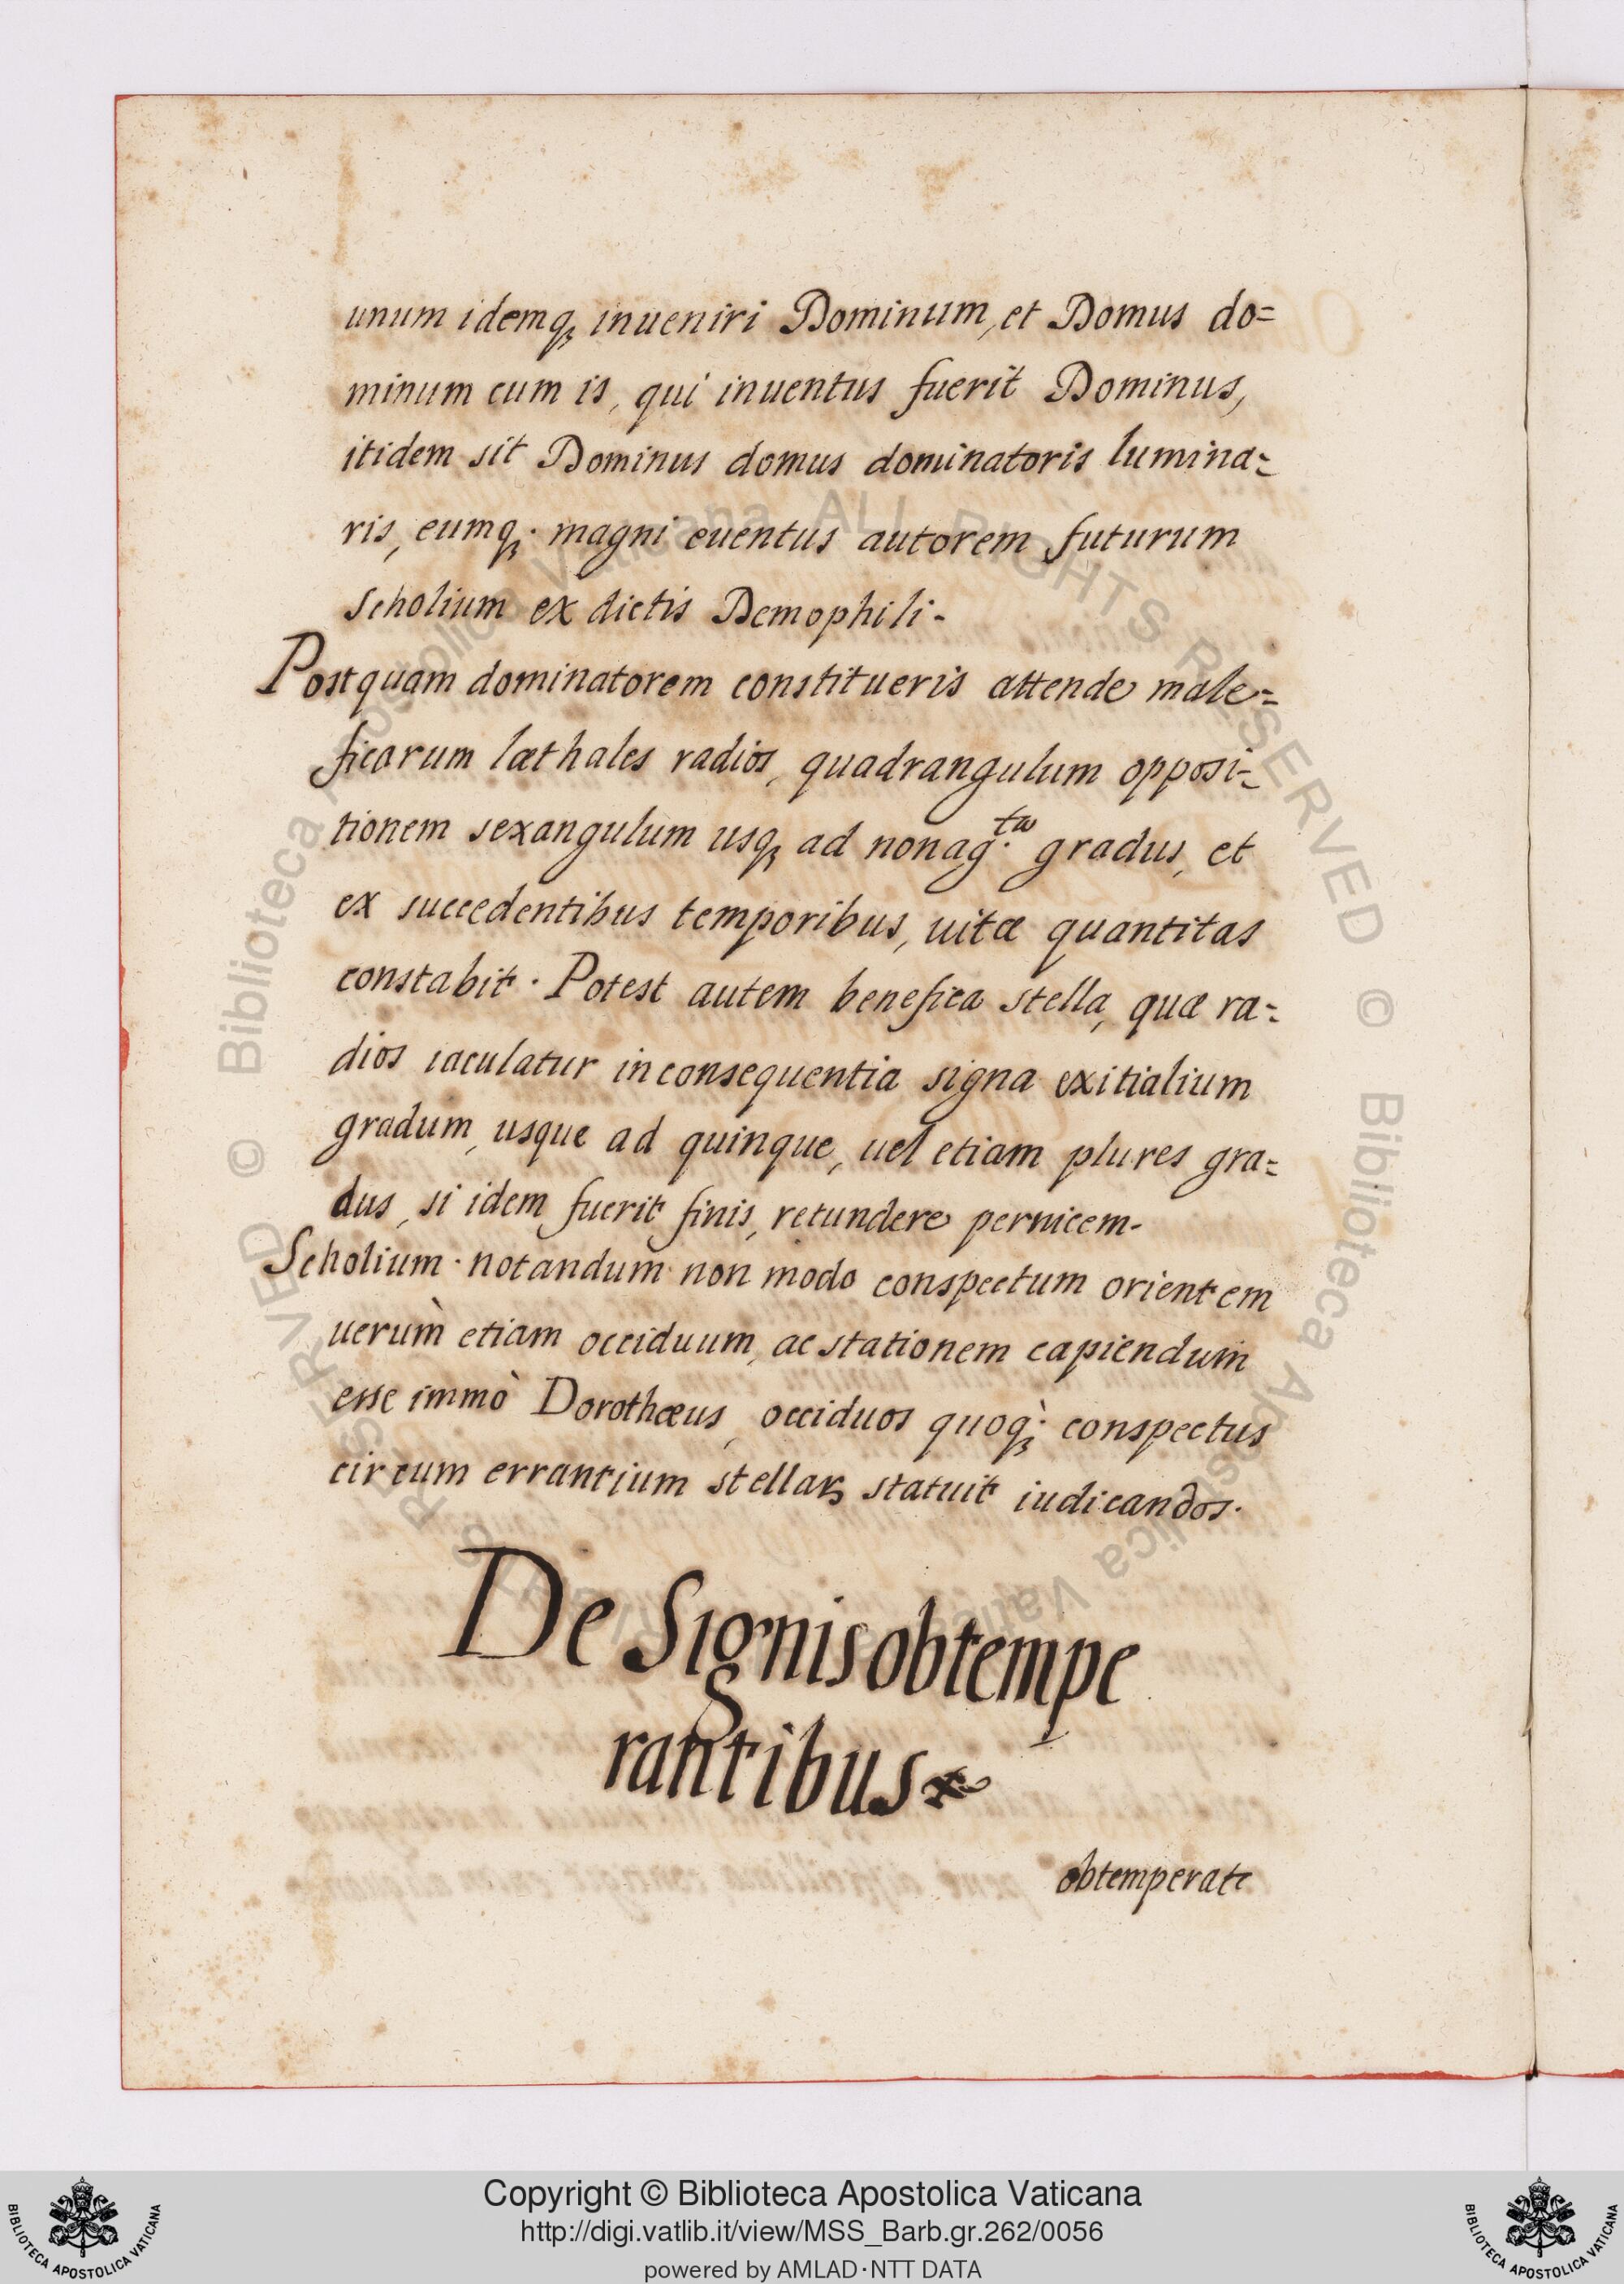 unum idemq; inueniri Dominum, et Domus do=
minum cum is, qui inuentus fuerit Dominus,
itidem sit Dominus domus dominatoris lumina=
ris, eumq;· magni euentus autorem futurum
Scholium ex dictis Demophili-
Postquam dominatorem constitueris attende male=
ficarum læthales radios, quadrangulum opposi=
tionem sexangulum usq; ad nonag.ta gradus, et
ex succedentibus temporibus, uitæ quantitas
constabit· Potest autem benefica stella, quæ ra=
dios iaculatur in consequentia signa exitialium
gradum, usque ad quinque, uel etiam plures gra=
dus, si idem fuerit finis, retundere pernicem-
Scholium· notandum non modo conspectum orientem
uerùm etiam occiduum, ac stationem capiendum
esse immò Dorothæus, occiduos quoq;· conspectus
circum errantium stellaꝝ statuit iudicandos·
De Signis obtempe
rantibus
obtemperate
© Biblioteca Apostolica Vaticana ALL RIGHTS RESERVED © Biblioteca Apostolica Vaticana ALL RIGHTS RESERVED
BIBLIOTECA APOSTOLICA VATICANA
Copyright © Biblioteca Apostolica Vaticana
http://digi.vatlib.it/view/MSS_Barb.gr.262/0056
powered by AMLAD·NTT DATA
BIBLIOTECA APOSTOLICA VATICANA